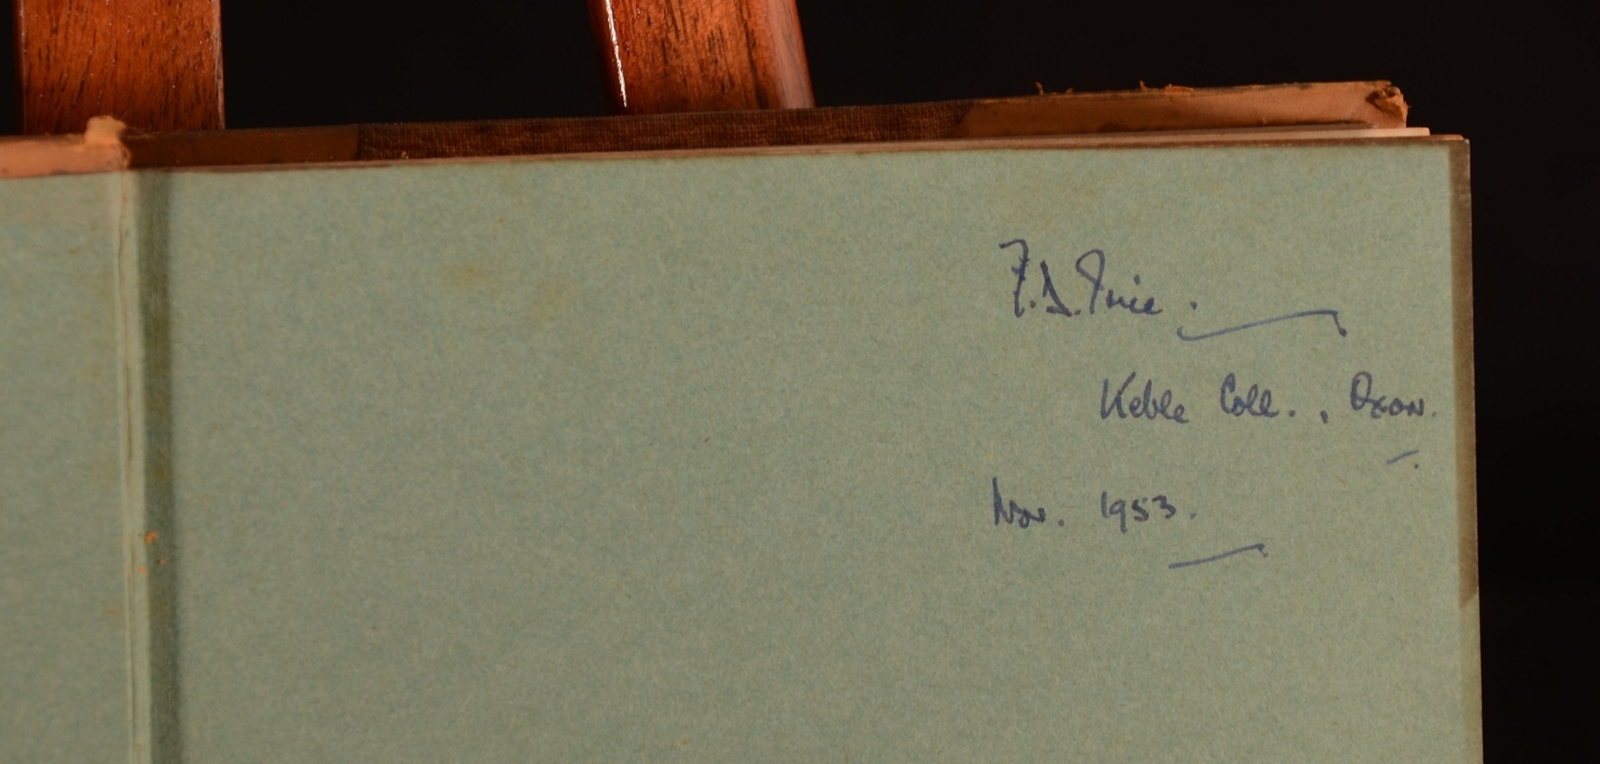 F.D. Price.
Keble Coll., Oxon.
Nov. 1953.